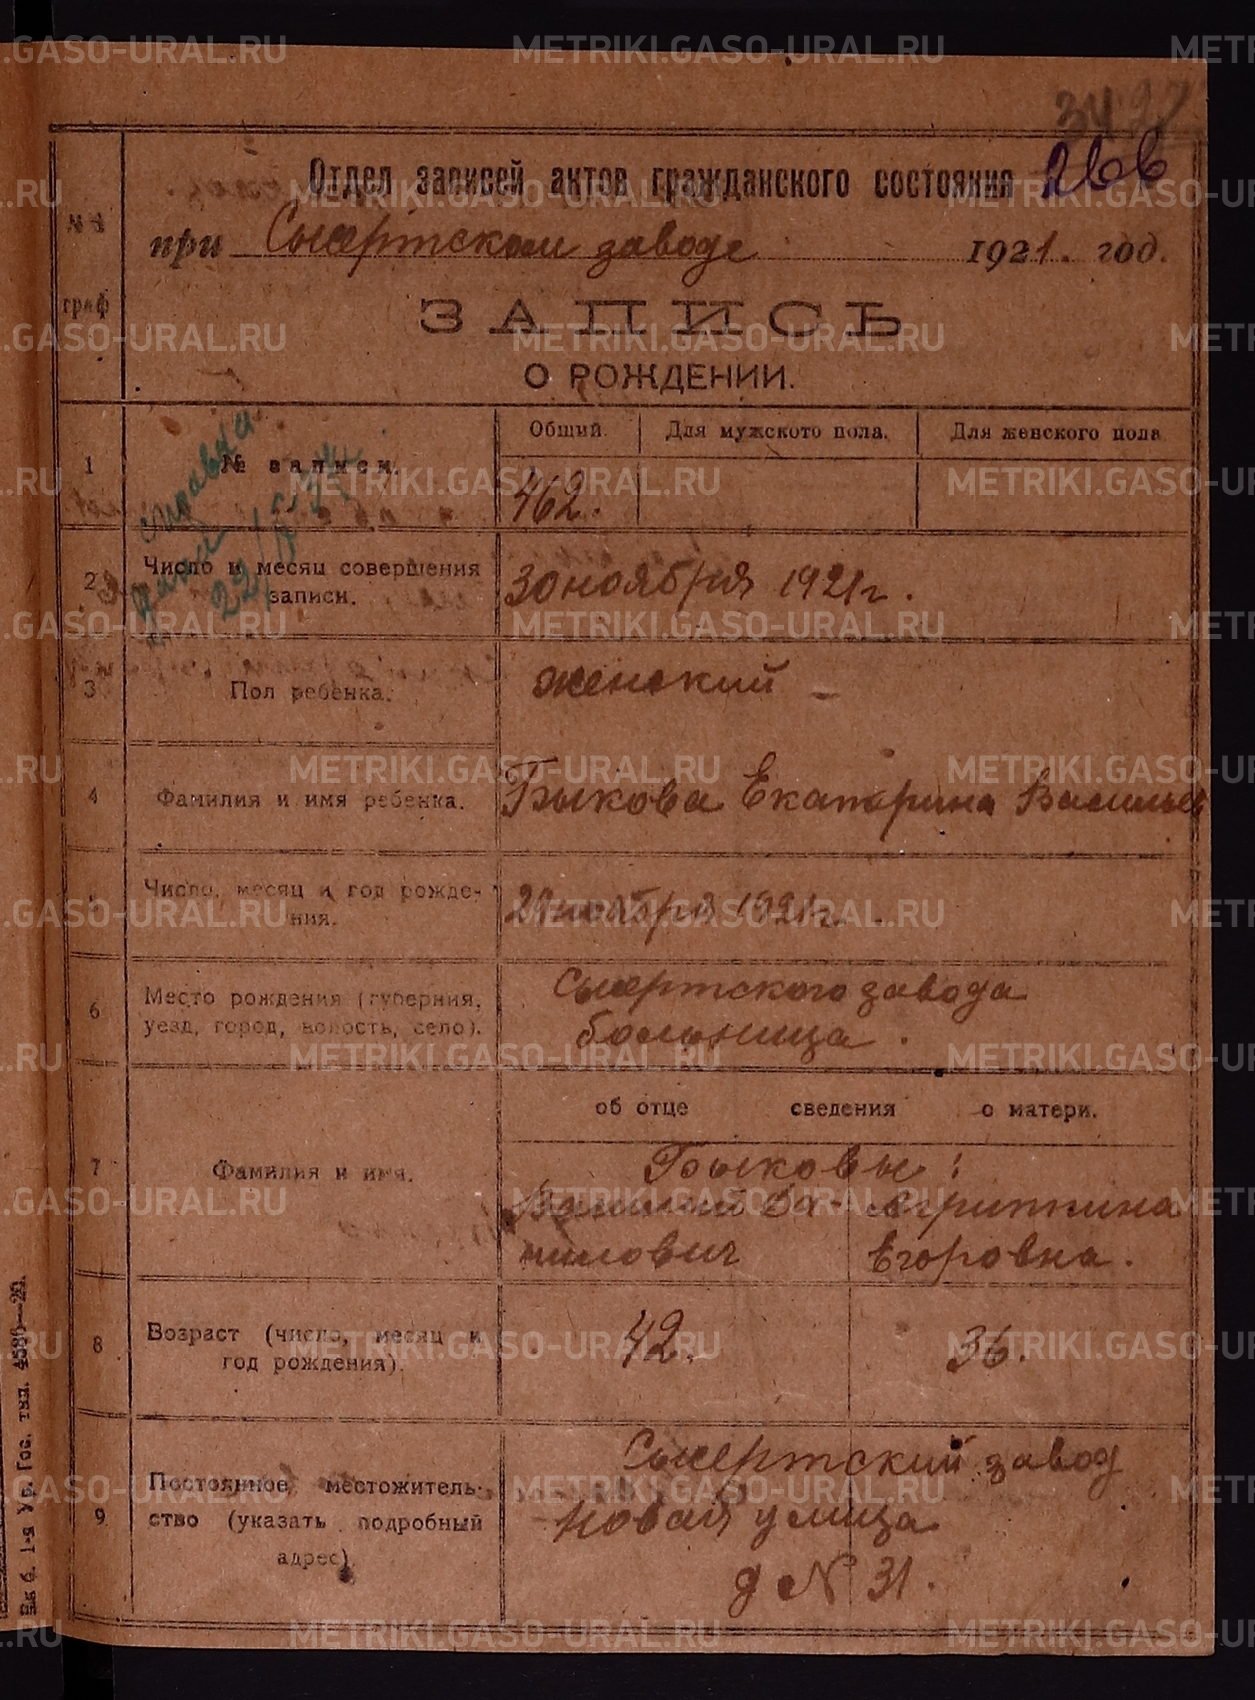 3427
266
Отдел записей актов гражданского состояния
при Сысертском заводе 1921. год.
№№
граф
ЗАПИСЬ
О РОЖДЕНИИ.
Общий. Для мужского пола. Для женского пола
1 № записи. 462.
справка
22/
2 Число и месяц совершения
записи. 30 ноября 1921 г.
3 Пол ребенка. женский
4 Фамилия и имя ребенка. Быкова Екатерина Васильев
Число, месяц и год рожде-
ния. 29 ноября 1921 г.
6 Место рождения (губерния, Сысертского завода
уезд, город, волость, село). больница.
об отце сведения о матери.
7 Фамилия и имя. Быковы:
Василий Агриппина
Егоровна.
8 Возраст (число, месяц и
год рождения). 42. 36.
Сысертский завод
9 Постоянное местожитель-
ство (указать подробный Новая улица
адрес). д № 31.
Екб. 1-я Ур. Гос. тип. 4586—20.
METRIKI.GASO-URAL.RU